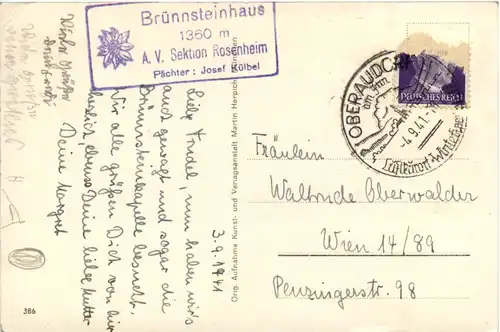 Brünnsteinhaus
1360 m
A. V. Sektion Rosenheim
Pächter: Josef Kölbel
3.9.1941
Liebe Trudel, nun haben wir's
auch gewagt und sogar die
Brünnsteinkapelle besucht.
Wir alle grüßen Dich von hier
herzlich, ebenso Deine liebe Mutter
Deine Margret
Viele Grüße
Orig. Aufnahme Kunst- und Verlagsanstalt Martin Herpich, München
386
DEUTSCHES REICH
OBERAUDORF
am Inn
-4.9.41.-
Luftkurort-Wintersport
Fräulein
Waltrude Oberwalder
Wien 14/89
Penzingerstr. 98